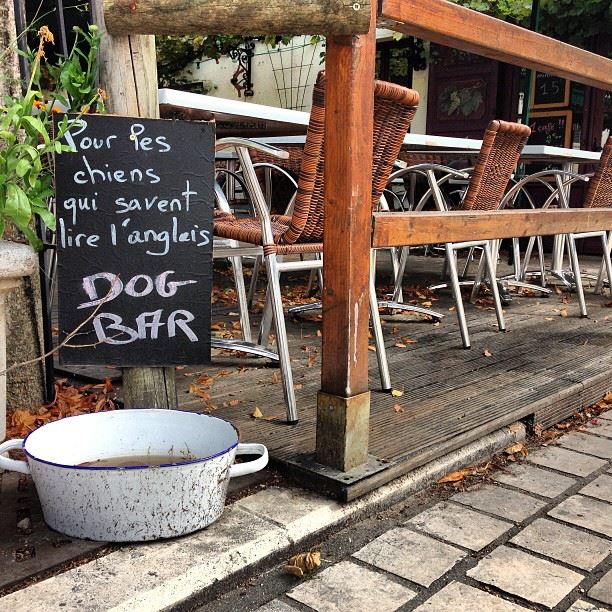 Pour les
chiens
qui savent
lire l'anglais
DOG
BAR
15